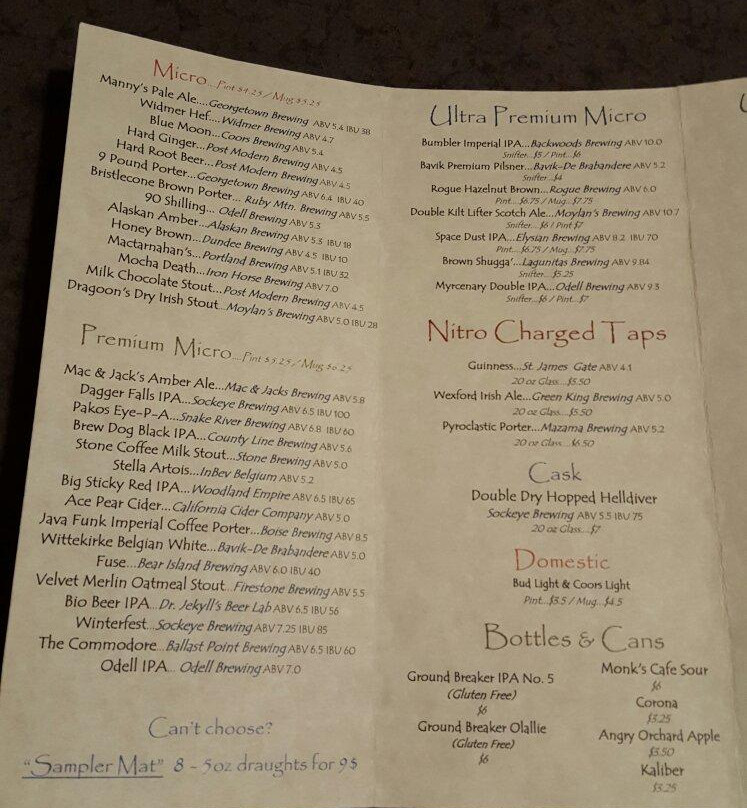 Micro....Pint $4.25 / Mug $5.25
Manny's Pale Ale....Georgetown Brewing ABV 5.4 IBU 38
Widmer Hef....Widmer Brewing ABV 4.7
Blue Moon...Coors Brewing ABV 5.4
Hard Ginger...Post Modern Brewing ABV 4.5
Hard Root Beer...Post Modern Brewing ABV 4.5
9 Pound Porter...Georgetown Brewing ABV 6.4 IBU 40
Bristlecone Brown Porter... Ruby Mtn. Brewing ABV 5.5
90 Shilling... Odell Brewing ABV 5.3
Alaskan Amber...Alaskan Brewing ABV 5.3 IBU 18
Honey Brown...Dundee Brewing ABV 4.5 IBU 10
Mactarnahan's...Portland Brewing ABV 5.1 IBU 32
Mocha Death...Iron Horse Brewing ABV 7.0
Milk Chocolate Stout...Post Modern Brewing ABV 4.5
Dragoon's Dry Irish Stout...Moylan's Brewing ABV 5.0 IBU 28
Premium Micro....Pint $5.25 / Mug $6.25
Mac & Jack's Amber Ale...Mac & Jacks Brewing ABV 5.8
Dagger Falls IPA...Sockeye Brewing ABV 6.5 IBU 100
Pakos Eye-P-A...Snake River Brewing ABV 6.8 IBU 60
Brew Dog Black IPA...County Line Brewing ABV 5.6
Stone Coffee Milk Stout...Stone Brewing ABV 5.0
Stella Artois...InBev Belgium ABV 5.2
Big Sticky Red IPA...Woodland Empire ABV 6.5 IBU 65
Ace Pear Cider...California Cider Company ABV 5.0
Java Funk Imperial Coffee Porter...Boise Brewing ABV 8.5
Wittekirke Belgian White...Bavik-De Brabandere ABV 5.0
Fuse...Bear Island Brewing ABV 6.0 IBU 40
Velvet Merlin Oatmeal Stout...Firestone Brewing ABV 5.5
Bio Beer IPA...Dr. Jekyll's Beer Lab ABV 6.5 IBU 56
Winterfest...Sockeye Brewing ABV 7.25 IBU 85
The Commodore...Ballast Point Brewing ABV 6.5 IBU 60
Odell IPA... Odell Brewing ABV 7.0
Can't choose?
"Sampler Mat" 8 - 5oz draughts for 9$
Ultra Premium Micro
Bumbler Imperial IPA...Backwoods Brewing ABV 10.0
Snifter...$5 / Pint...$6
Bavik Premium Pilsner...Bavik-De Brabandere ABV 5.2
Snifter...$4
Rogue Hazelnut Brown...Rogue Brewing ABV 6.0
Pint...$6.75 / Mug...$7.75
Double Kilt Lifter Scotch Ale...Moylan's Brewing ABV 10.7
Snifter...$6 / Pint $7
Space Dust IPA...Elysian Brewing ABV 8.2 IBU 70
Pint...$6.75 / Mug...$7.75
Brown Shugga'...Lagunitas Brewing ABV 9.84
Snifter...$5.25
Myrcenary Double IPA...Odell Brewing ABV 9.3
Snifter...$6 / Pint...$7
Nitro Charged Taps
Guinness...St. James Gate ABV 4.1
20 oz Glass....$5.50
Wexford Irish Ale...Green King Brewing ABV 5.0
20 oz Glass...$5.50
Pyroclastic Porter...Mazama Brewing ABV 5.2
20 oz Glass...$6.50
Cask
Double Dry Hopped Helldiver
Sockeye Brewing ABV 5.5 IBU 75
20 oz Glass...$7
Domestic
Bud Light & Coors Light
Pint...$3.5 / Mug...$4.5
Bottles & Cans
Ground Breaker IPA No. 5
(Gluten Free)
$6
Ground Breaker Olallie
(Gluten Free)
$6
Monk's Cafe Sour
$6
Corona
$3.25
Angry Orchard Apple
$3.50
Kaliber
$3.25